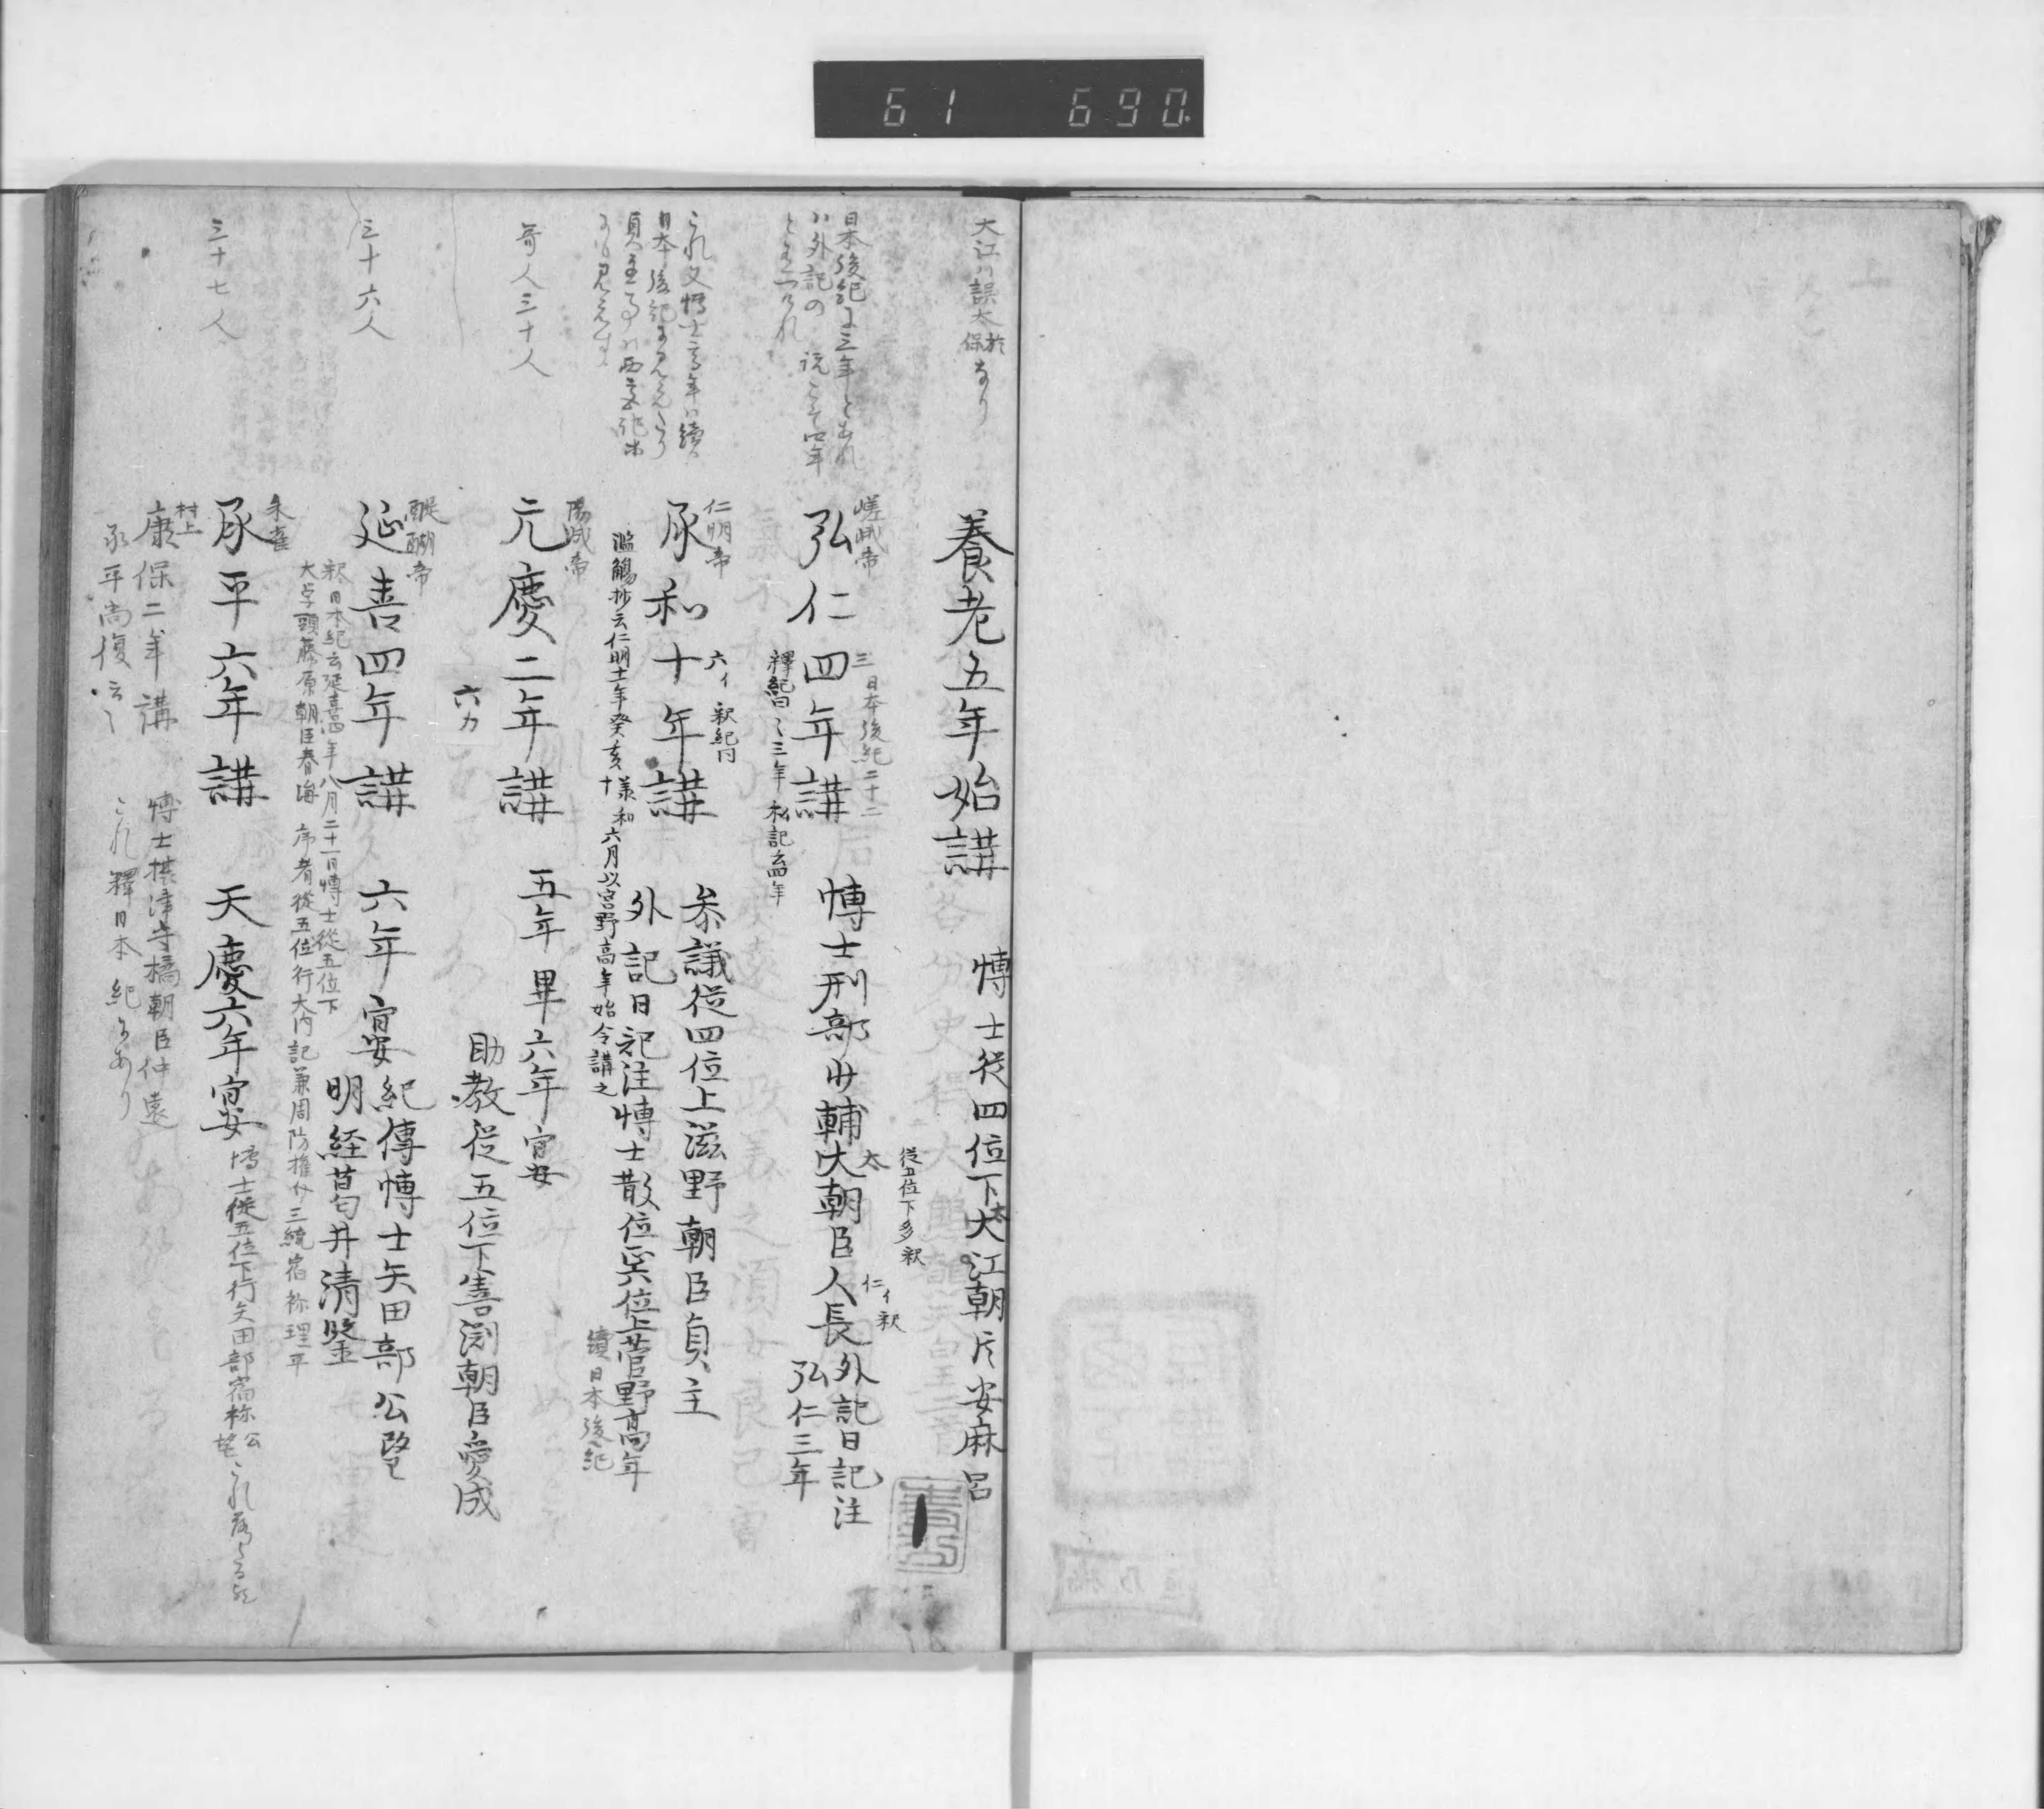 61 690
大江ハ誤太
養老五年始講
博士従四位下大江朝臣安麻呂
太
日本後紀に三年とあれ
ハ外記の説こそ四年
嵯峨帝
弘仁四年講
三日本後紀二十二
釋紀曰〻三年私記云四年
博士刑部少輔大朝臣人長
太
従五位下多釈
仁イ釈
外記日記注
弘仁三年
これ又博士高年ハ續
日本後紀に見えたり
貞主の事ハ西宮記
仁明帝
承和十年講
六イ
釈紀同
濫觴抄云仁明十一年癸亥十
承和六月以宮野高年始令講之
参議従四位上滋野朝臣貞主
外記日記注博士散位正六位上菅野高年
續日本後紀
哥人三十人
陽成帝
元慶二年講
六カ
五年畢六年宴
助教従五位下善淵朝臣愛成
三十六人
醍醐帝
延喜四年講
六年宴
紀傳博士矢田部公望
明経苗匂井清鑒
釈日本紀云延喜四年八月二十一日博士従五位下
大学頭藤原朝臣春海
序者従五位行大内記兼周防権介三統宿祢理平
三十七人
朱雀
承平六年講
天慶六年宴
博士従五位下行矢田部宿祢公望
村上
康保二年講
博士摂津守橘朝臣仲遠
承平尚復云〻
これ釋日本紀にあり